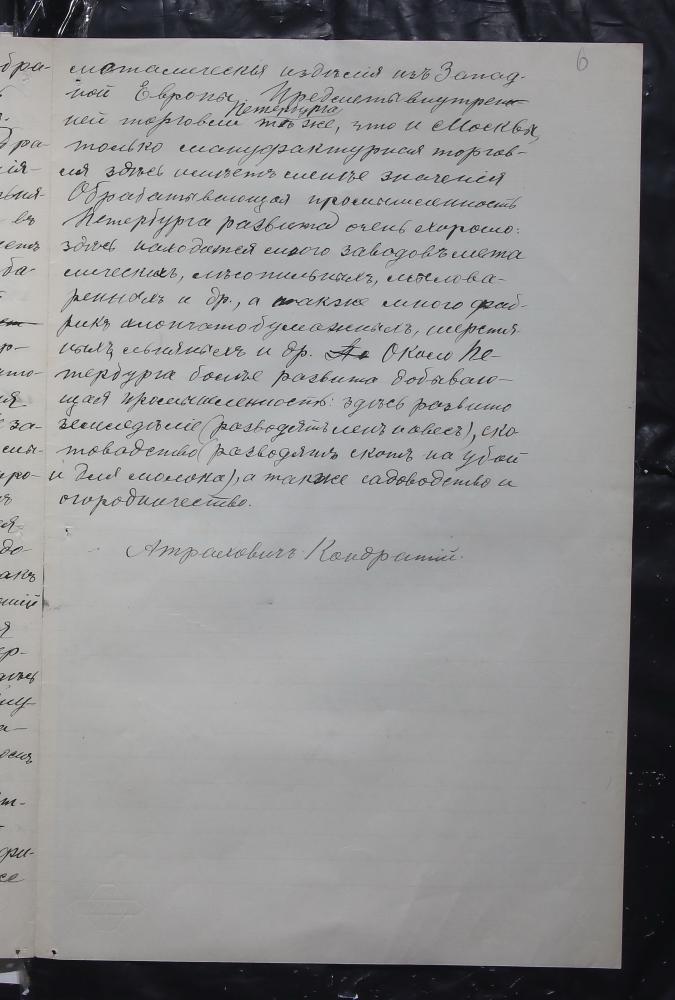 6
металическія издѣлія изъ Запад-
ной Европы. Предметы внутрен-
Петербурга
ней торговли тѣ же, что и Москвы,
только мануфактурная торгов-
ля здѣсь имѣетъ менѣе значенія
Обрабатывающая промышленность
Петербурга развита очень хорошо:
здѣсь находятся много заводовъ мета
лическихъ, лѣсопильныхъ, мылова-
ренныхъ и др., а также много фаб-
рикъ хлопчатобумажныхъ, шерстя
ныхъ, льняныхъ и др. Около Пе-
тербурга болѣе развита добываю-
щая промышленность: здѣсь развито
земледѣліе (разводятъ ленъ и овесъ), ско
товодство (разводятъ скотъ на убой
и для молока), а также садоводство и
огородничество.
Атрахович Кондратій.